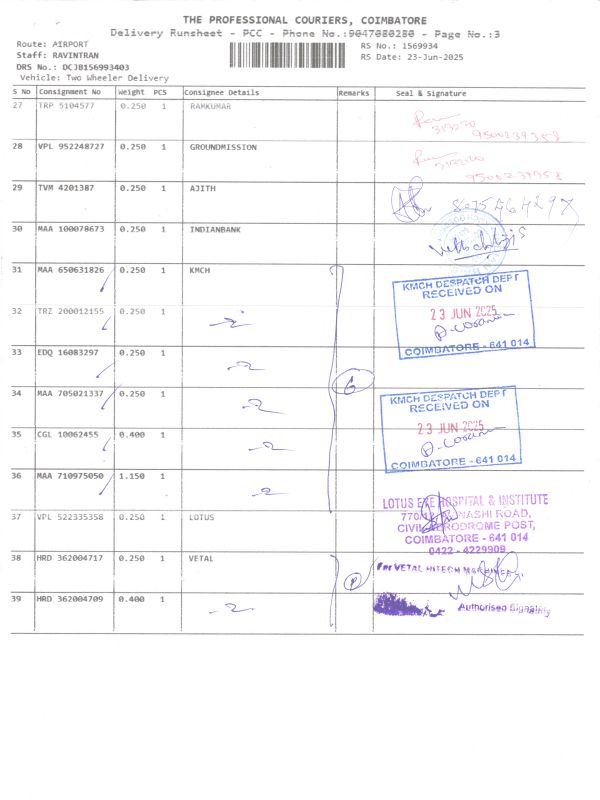 THE PROFESSIONAL COURIERS, COIMBATORE
Delivery Runsheet - PCC - Phone No.:9047080280 - Page No.:3
Route: AIRPORT
RS No.: 1569934
Staff: RAVINTRAN
RS Date: 23-Jun-2025
DRS No.: DCJB156993403
Vehicle: Two Wheeler Delivery
S No Consignment No Weight PCS Consignee Details Remarks Seal & Signature
27 TRP 5104577 0.250 1 RAMKUMAR
9500239358
28 VPL 952248727 0.250 1 GROUNDMISSION
29 TVM 4201387 0.250 1 AJITH
30 MAA 100078673 0.250 1 INDIANBANK
31 MAA 650631826 0.250 1 KMCH
KMCH DESPATCH DEPT
RECEIVED ON
23 JUN 2025
COIMBATORE - 641 014
32 TRZ 200012155 0.250 1
33 EDQ 16083297 0.250 1
6
34 MAA 705021337 0.250 1
KMCH DESPATCH DEPT
RECEIVED ON
23 JUN 2025
COIMBATORE - 641 014
35 CGL 10062455 0.400 1
36 MAA 710975050 1.150 1
LOTUS EYE HOSPITAL & INSTITUTE
CIVIL AERODROME POST,
COIMBATORE - 641 014
0422 - 4229909
37 VPL 522335358 0.250 1 LOTUS
38 HRD 362004717 0.250 1 VETAL
For VETAL HITECH
39 HRD 362004709 0.400 1
Authorised Signatory